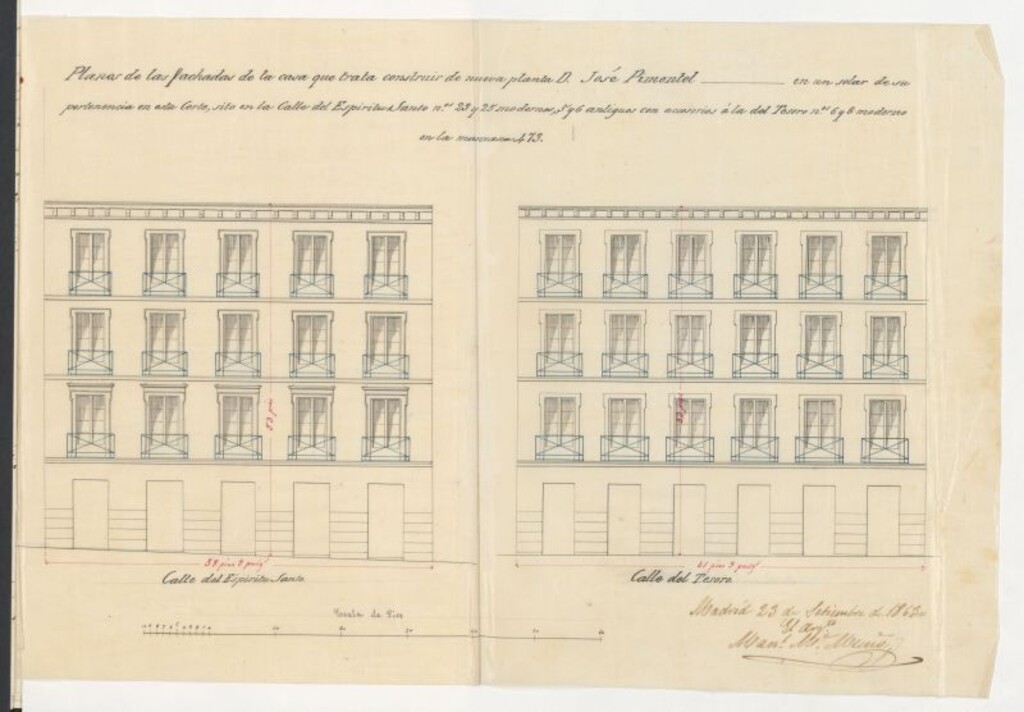 Planos de las fachadas de la casa que trata construir de nueva planta D. José Pimentel en un solar de su
pertenencia en esta Corte, sito en la Calle del Espiritu Santo n.os 23 y 25 modernos, 5 y 6 antiguos con accesorias á la del Tesoro n.os 6 y 8 moderno
en la manzana 473.
53 pies
52 pies
58 pies 8 pulg.s
61 pies 9 pulg.s
Calle del Espiritu Santo
Calle del Tesoro
Escala de Pies
Madrid 23 de Setiembre de 1863
El Arq.to
Man.l M.a